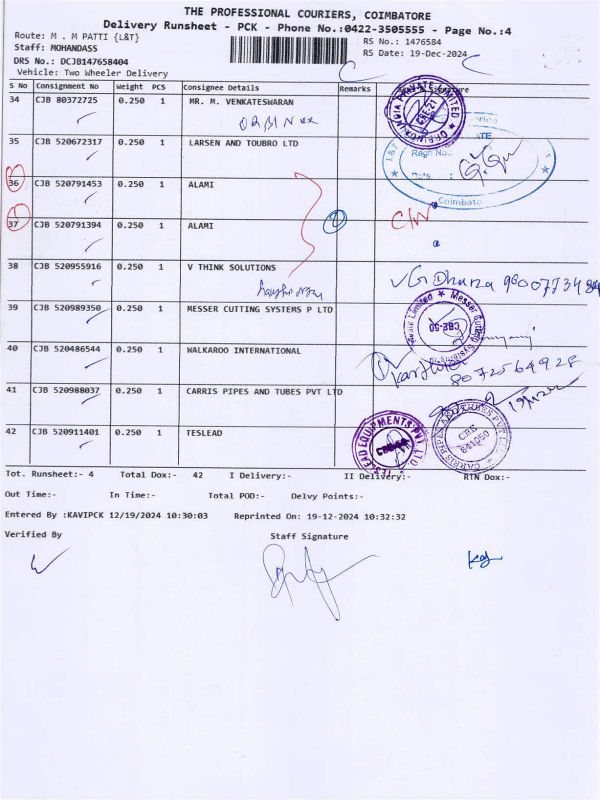 THE PROFESSIONAL COURIERS, COIMBATORE
Delivery Runsheet - PCK - Phone No.:0422-3505555 - Page No.:4
Route: M . M PATTI {L&T} RS No.: 1476584
Staff: MOHANDASS RS Date: 19-Dec-2024
DRS No.: DCJB147658404
Vehicle: Two Wheeler Delivery
S No Consignment No Weight PCS Consignee Details Remarks Signature
34 CJB 80372725 0.250 1 MR. M. VENKATESWARAN
35 CJB 520672317 0.250 1 LARSEN AND TOUBRO LTD
Regn No.:
Date :
Coimbato
36 CJB 520791453 0.250 1 ALAMI
37 CJB 520791394 0.250 1 ALAMI
38 CJB 520955916 0.250 1 V THINK SOLUTIONS
39 CJB 520989350 0.250 1 MESSER CUTTING SYSTEMS P LTD
CBE-50
40 CJB 520486544 0.250 1 WALKAROO INTERNATIONAL
8072564928
41 CJB 520988037 0.250 1 CARRIS PIPES AND TUBES PVT LTD
42 CJB 520911401 0.250 1 TESLEAD
TESLEAD EQUIPMENTS PVT LTD
CBE
641050
Tot. Runsheet:- 4 Total Dox:- 42 I Delivery:- II Delivery:- RTN Dox:-
Out Time:- In Time:- Total POD:- Delvy Points:-
Entered By :KAVIPCK 12/19/2024 10:30:03 Reprinted On: 19-12-2024 10:32:32
Verified By Staff Signature